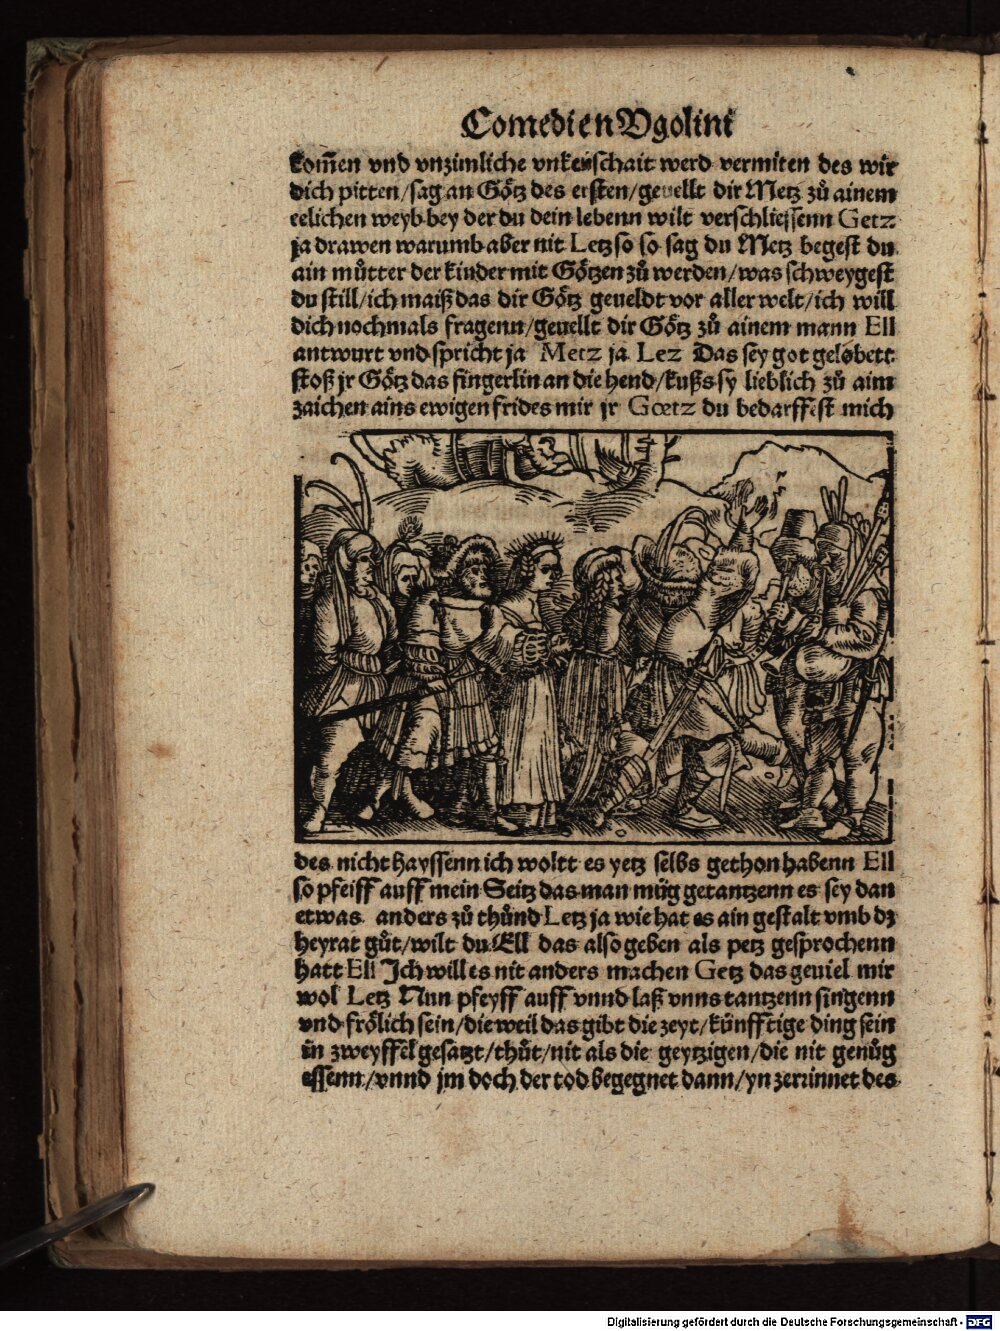 Comedien Vgolini
kom̃en vnd vnzimliche vnkeüschait werd vermiten des wir
dich pitten/sag an Götz des ersten/geuellt dir Metz zů ainem
eelichen weyb bey der du dein lebenn wilt verschliessenn Getz
ja drawen warumb aber nit Letz so so sag du Metz begest du
ain můtter der kinder mit Götzen zů werden/was schweygest
du still/ich maiß das dir Götz geueldt vor aller welt/ich will
dich nochmals fragenn/geuellt dir Götz zů ainem mann Ell
antwurt vnd spricht ja Metz ja Lez Das sey got gelobett
stoß jr Götz das fingerlin an die hend/kußs sy lieblich zů aim
zaichen ains ewigen frides mir jr Goetz du bedarffest mich
des nicht hayssenn ich woltt es yetz selbs gethon habenn Ell
so pfeiff auff mein Seitz das man müg getantzenn es sey dan
etwas anders zů thůnd Letz ja wie hat es ain gestalt vmb dz
heyrat gůt/wilt du Ell das also geben als petz gesprochenn
hatt Ell Ich will es nit anders machen Getz das geuiel mir
wol Letz Nun pfeyff auff vnnd laß vnns tantzenn singenn
vnd frölich sein/die weil das gibt die zeyt/künfftige ding sein
in zweyffel gesatzt/thůt/nit als die geytzigen/die nit genůg
essenn/vnnd jm doch der tod begegnet dann/yn zerrinnet des
Digitalisierung gefördert durch die Deutsche Forschungsgemeinschaft - DFG